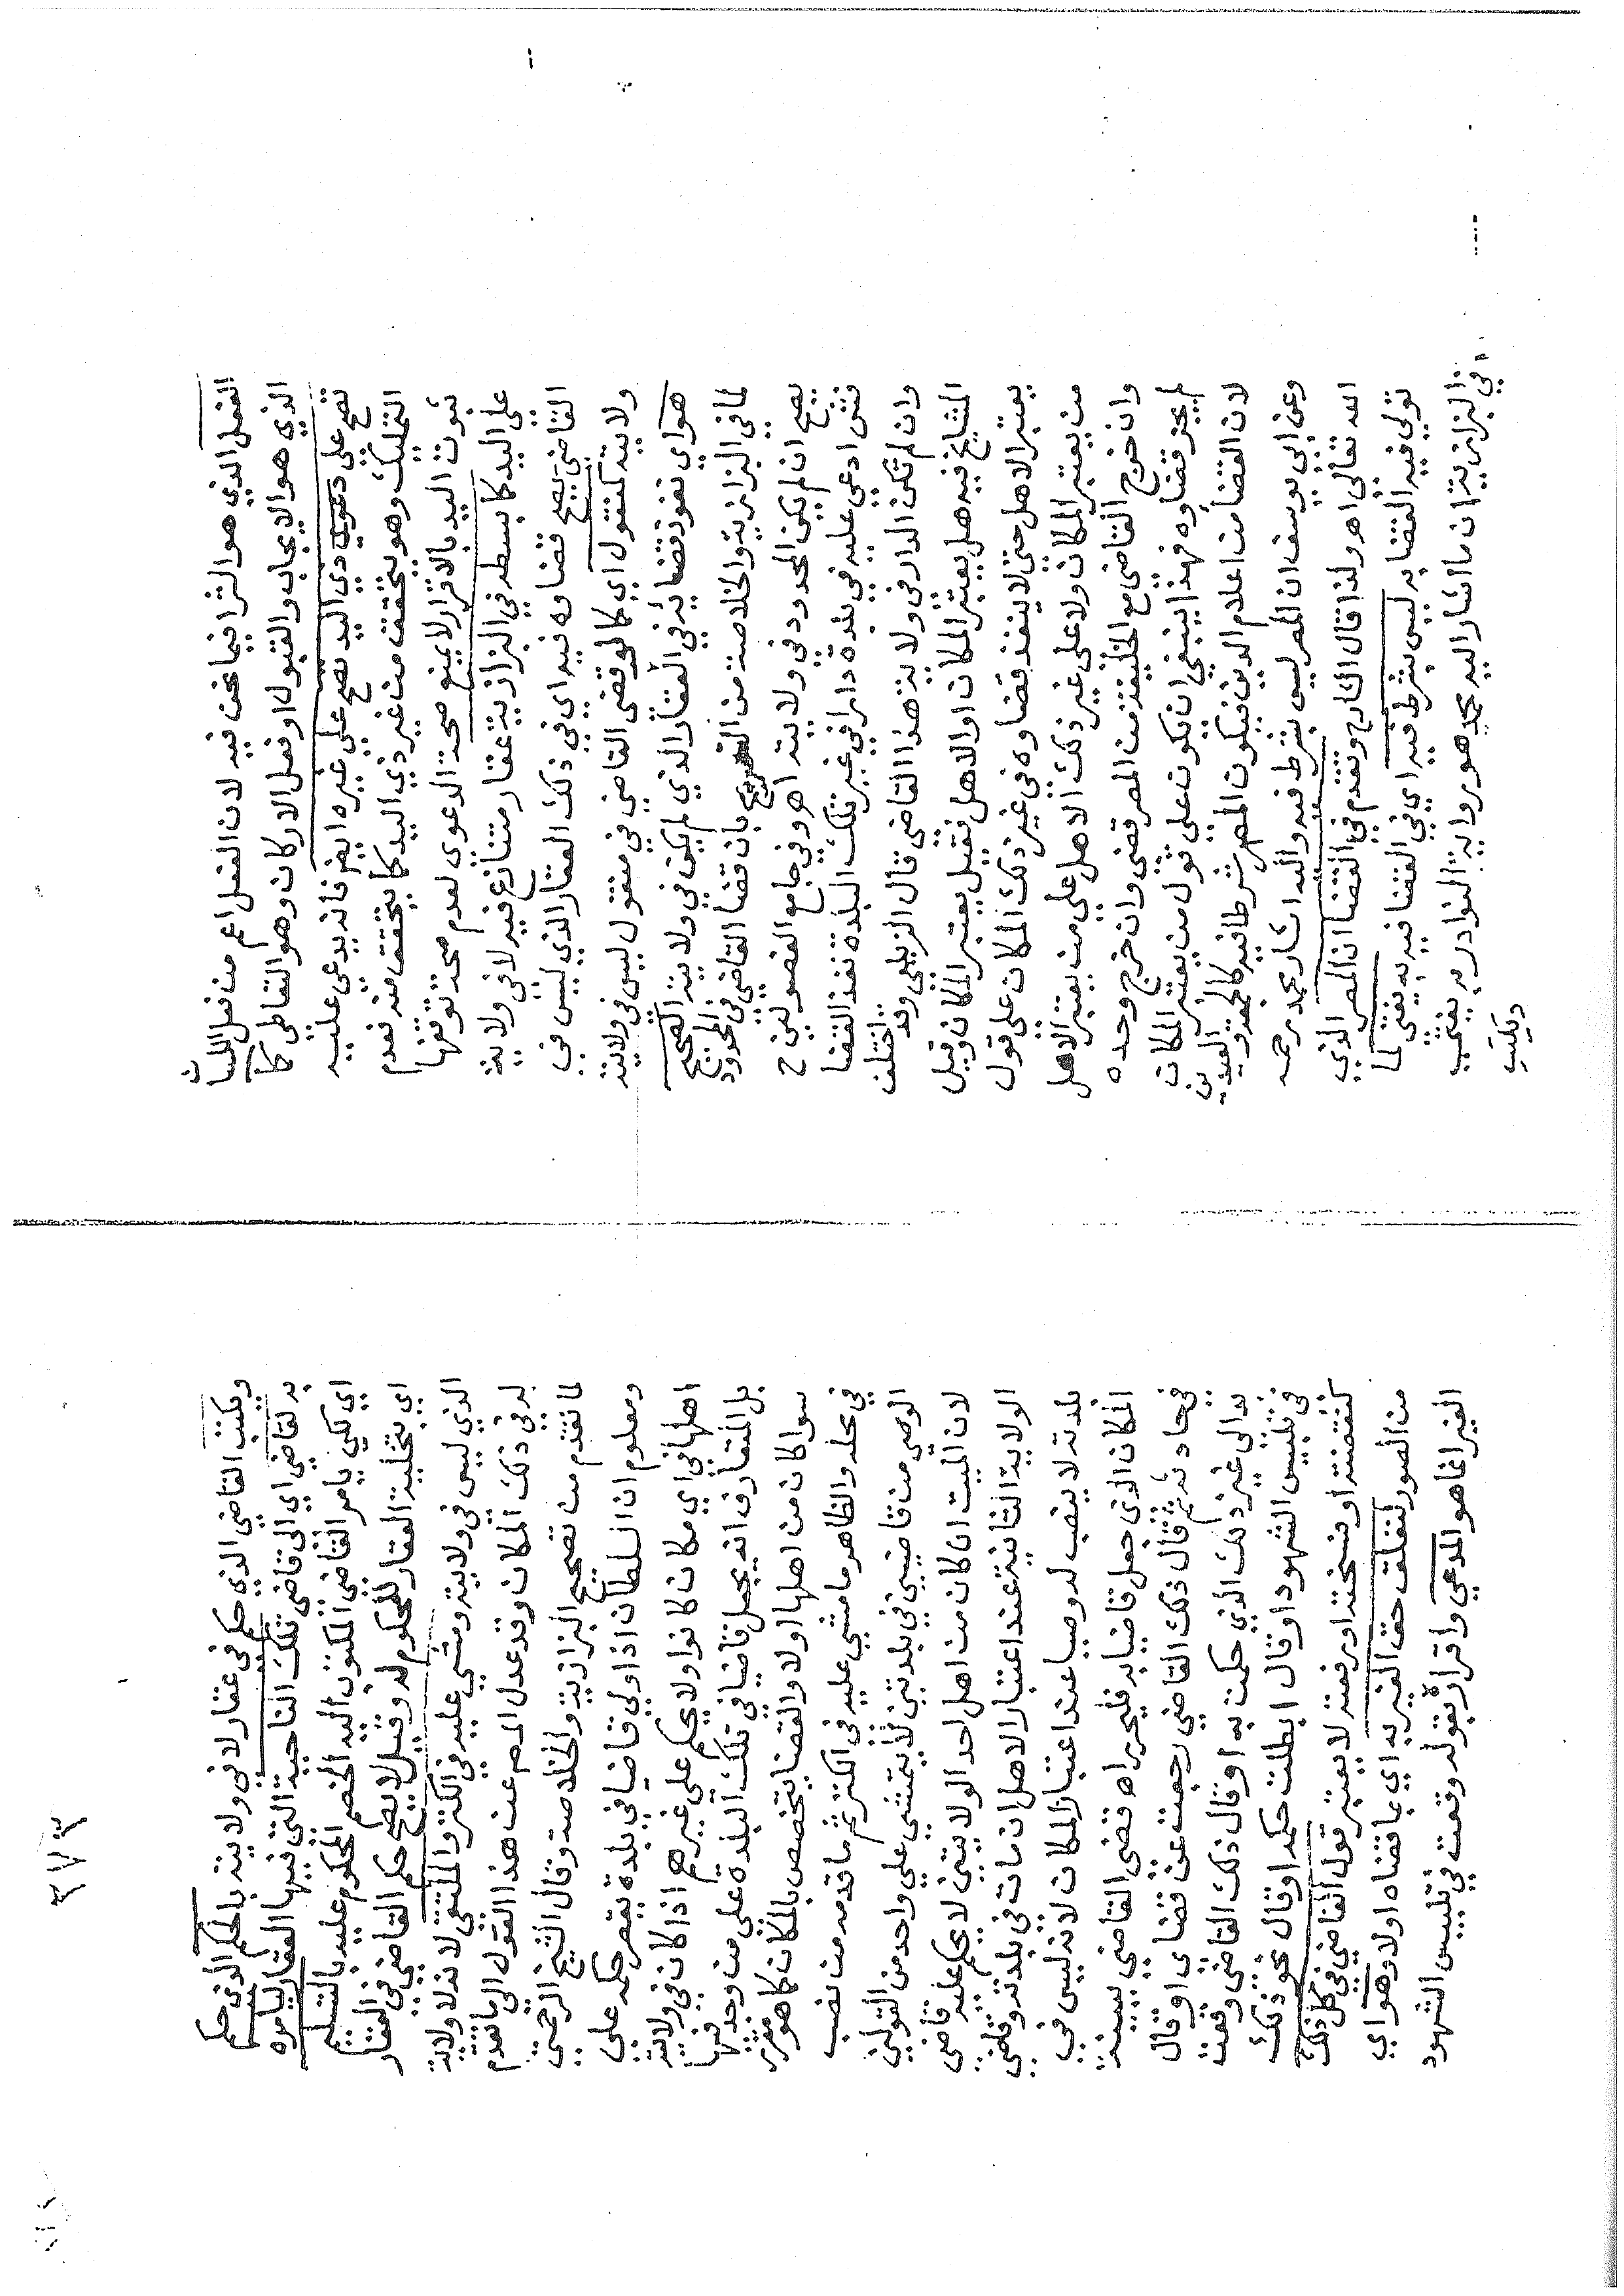 الفعل الذي هو الشرا فيما نحن فيه لان الفعل اعم من فعل اللسان
الذي هو الايجاب والقبول او فعل الاركان وهو التعاطي كما
تصح علي دعوي ذي اليد تصح علي غيره ايضا فانه يدعي عليه
التمليك وهو يتحقق من غير ذي اليد كما يتحقق منه فعدم
ثبوت اليد بالاقرار لا يمنع صحة الدعوي لعدم صحة توقفها
علي اليد كما بسطه في البزازية عقار متنازع فيه لا في ولاية
القاضي يصح قضاوه فيه اي في ذلك العقار الذي ليس في
ولايته كمنقول اي كما لو قضي القاضي في منقول ليس في ولايته
هو اي نفوذ قضائه في العقار الذي لم يكن في ولايته الصحيح
لما في البزازية والخلاصة من التصريح بان قضا القاضي في المحدود
يصح ان لم يكن المحدود في ولايته اهـ وفي جامع الفصولين ح
فش ادعي عليه في بلدة دارا في غير تلك البلدة تنفذ القضا
وان لم تكن الدار في ولاية هذا القاضي قال الزيلعي وقد اختلف
المشايخ فيه هل يعتبر المكان او الاهل فقيل يعتبر المكان وقيل
يعتبر الاهل حتي لا ينفذ قضاوه في غير ذلك المكان علي قول
من يعتبر المكان ولا علي غير ذلك الاهل علي من يعتبر الاهل
وان خرج القاضي مع الخليفة من المصر قضي وان خرج وحده
لم يجز قضاوه فهذا ينبغي ان يكون علي قول من يعتبر المكان
لان القضا من اعلام الدين فيكون المصر شرطا فيه كالجمعة والعيدين
وعن ابي يوسف ان المصر ليس بشرط فيه واليه اشار محمد رحمه
الله تعالي اهـ ولذا قال الشارح وتقدم في القضا ان المصر الذي
تولي فيه القضا به ليس بشرط فيه اي في القضا فيه به يفتي لما
في البزازية ان ما اشار اليه محمد هو رواية النوادر به يفتي
ويكتب
ويكتب القاضي الذي حكم في عقار لا في ولايته بالحكم الذي حكم
به لقاضي اي الي قاضي تلك الناحية التي فيها العقار ليامره
اي لكي يامر القاضي المكتوب اليه الخصم المحكوم عليه بالتسليم
اي بتخلية العقار للمحكوم له وقيل لا يصح حكم القاضي في العقار
الذي ليس في ولايته ومشي عليه في الكنز والملتقي لانه لا ولاية
له في ذلك المكان وقد عدل المص عن هذا القول الي ما تقدم
لما تقدم من تصحيح البزازية والخلاصة وقال الشيخ الرحمتي
ومعلوم ان السلطان اذا ولي قاضيا في بلدة يقصر حكمه علي
اهلها في اي مكان كانوا ولا يحكم علي غيرهم اذا كان في ولايته
بل المتعارف انه يجعل قاضيا في تلك البلدة علي من وجد فيها
سوا كان من اهلها او لا والقضا يتخصص بالمكان كما هو مقرر
في محله والظاهر ما مشي عليه في الكنز ثم ما قدمه من نصب
الوصي من قاضيين في بلدتين لا يتمشي علي واحد من القولين
لان الميت ان كان من اهل احد الولايتين لا يحكم عليه قاضي
الولاية الثانية عند اعتبار الاهل ان مات في بلدته وقاضي
بلدته لا ينصب له وصيا عند اعتبار المكان لانه ليس في
المكان الذي جعل قاضيا به فليحرر اهـ قضي القاضي ببينة
في حادثة ثم قال ذلك القاضي رجعت عن قضاي او قال
بدا لي غير ذلك الذي حكمت به او قال ذلك القاضي وقفت
في تلبيس الشهود او قال ابطلت حكمه او قال نحو ذلك
كنقضته او فسخته او رفعته لا يعتبر قول القاضي في كل ذلك
من الصور لتعلق حق الغير به اي بما قضاه اولا وهو اي
الغير انما هو المدعي واقراره بقوله وقعت في تلبيس الشهود
٣٧٣